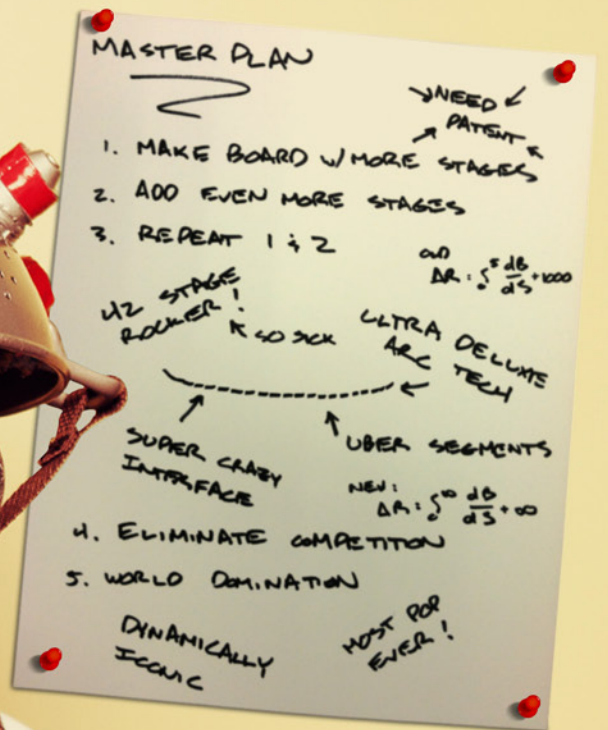 MASTER PLAN
→NEED←
PATENT
1. MAKE BOARD W/MORE STAGES
2. ADD EVEN MORE STAGES
3. REPEAT 1 & 2
OLD
ΔR: ∫₀⁵ dB/dS +1000
42 STAGE
ROCKER!
SO SICK
ULTRA DELUXE
ARC TECH
SUPER CRAZY
INTERFACE
UBER SEGMENTS
NEW:
ΔR: ∫₀^∞ dB/dS +∞
4. ELIMINATE COMPETITION
5. WORLD DOMINATION
DYNAMICALLY
ICONIC
MOST POP
EVER!